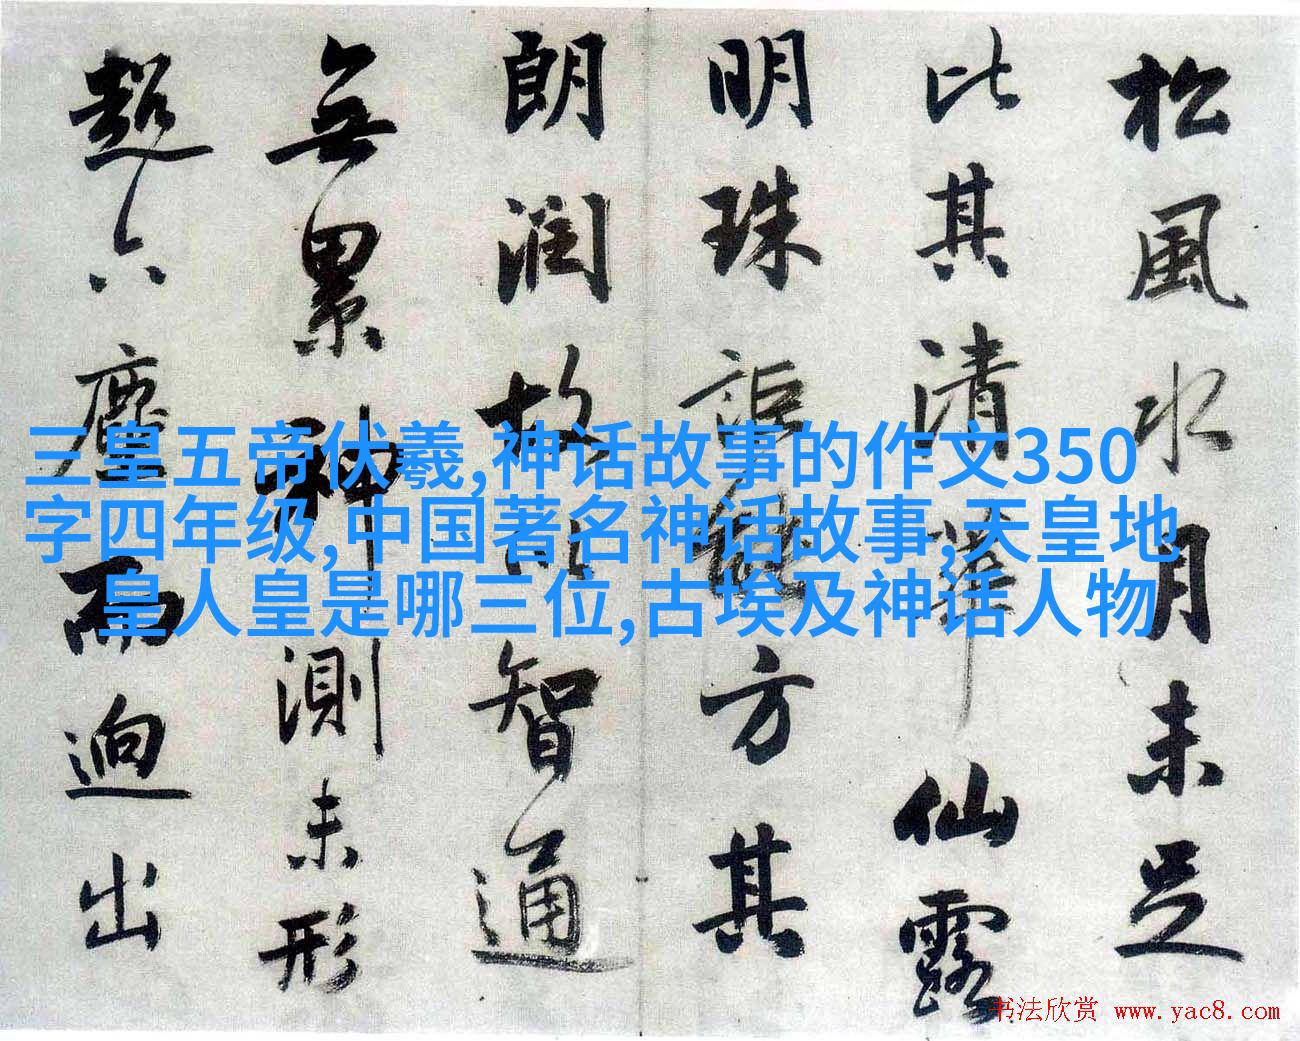 松風水月未足
比其清華仙露
明珠詎能方其
朗潤故以智通
無累神測未形
超六塵而迥出
三皇五帝伏羲,神话故事的作文350
字四年级,中国著名神话故事,天皇地
皇人皇是哪三位,古埃及神话人物
书法欣赏 www.yac8.com